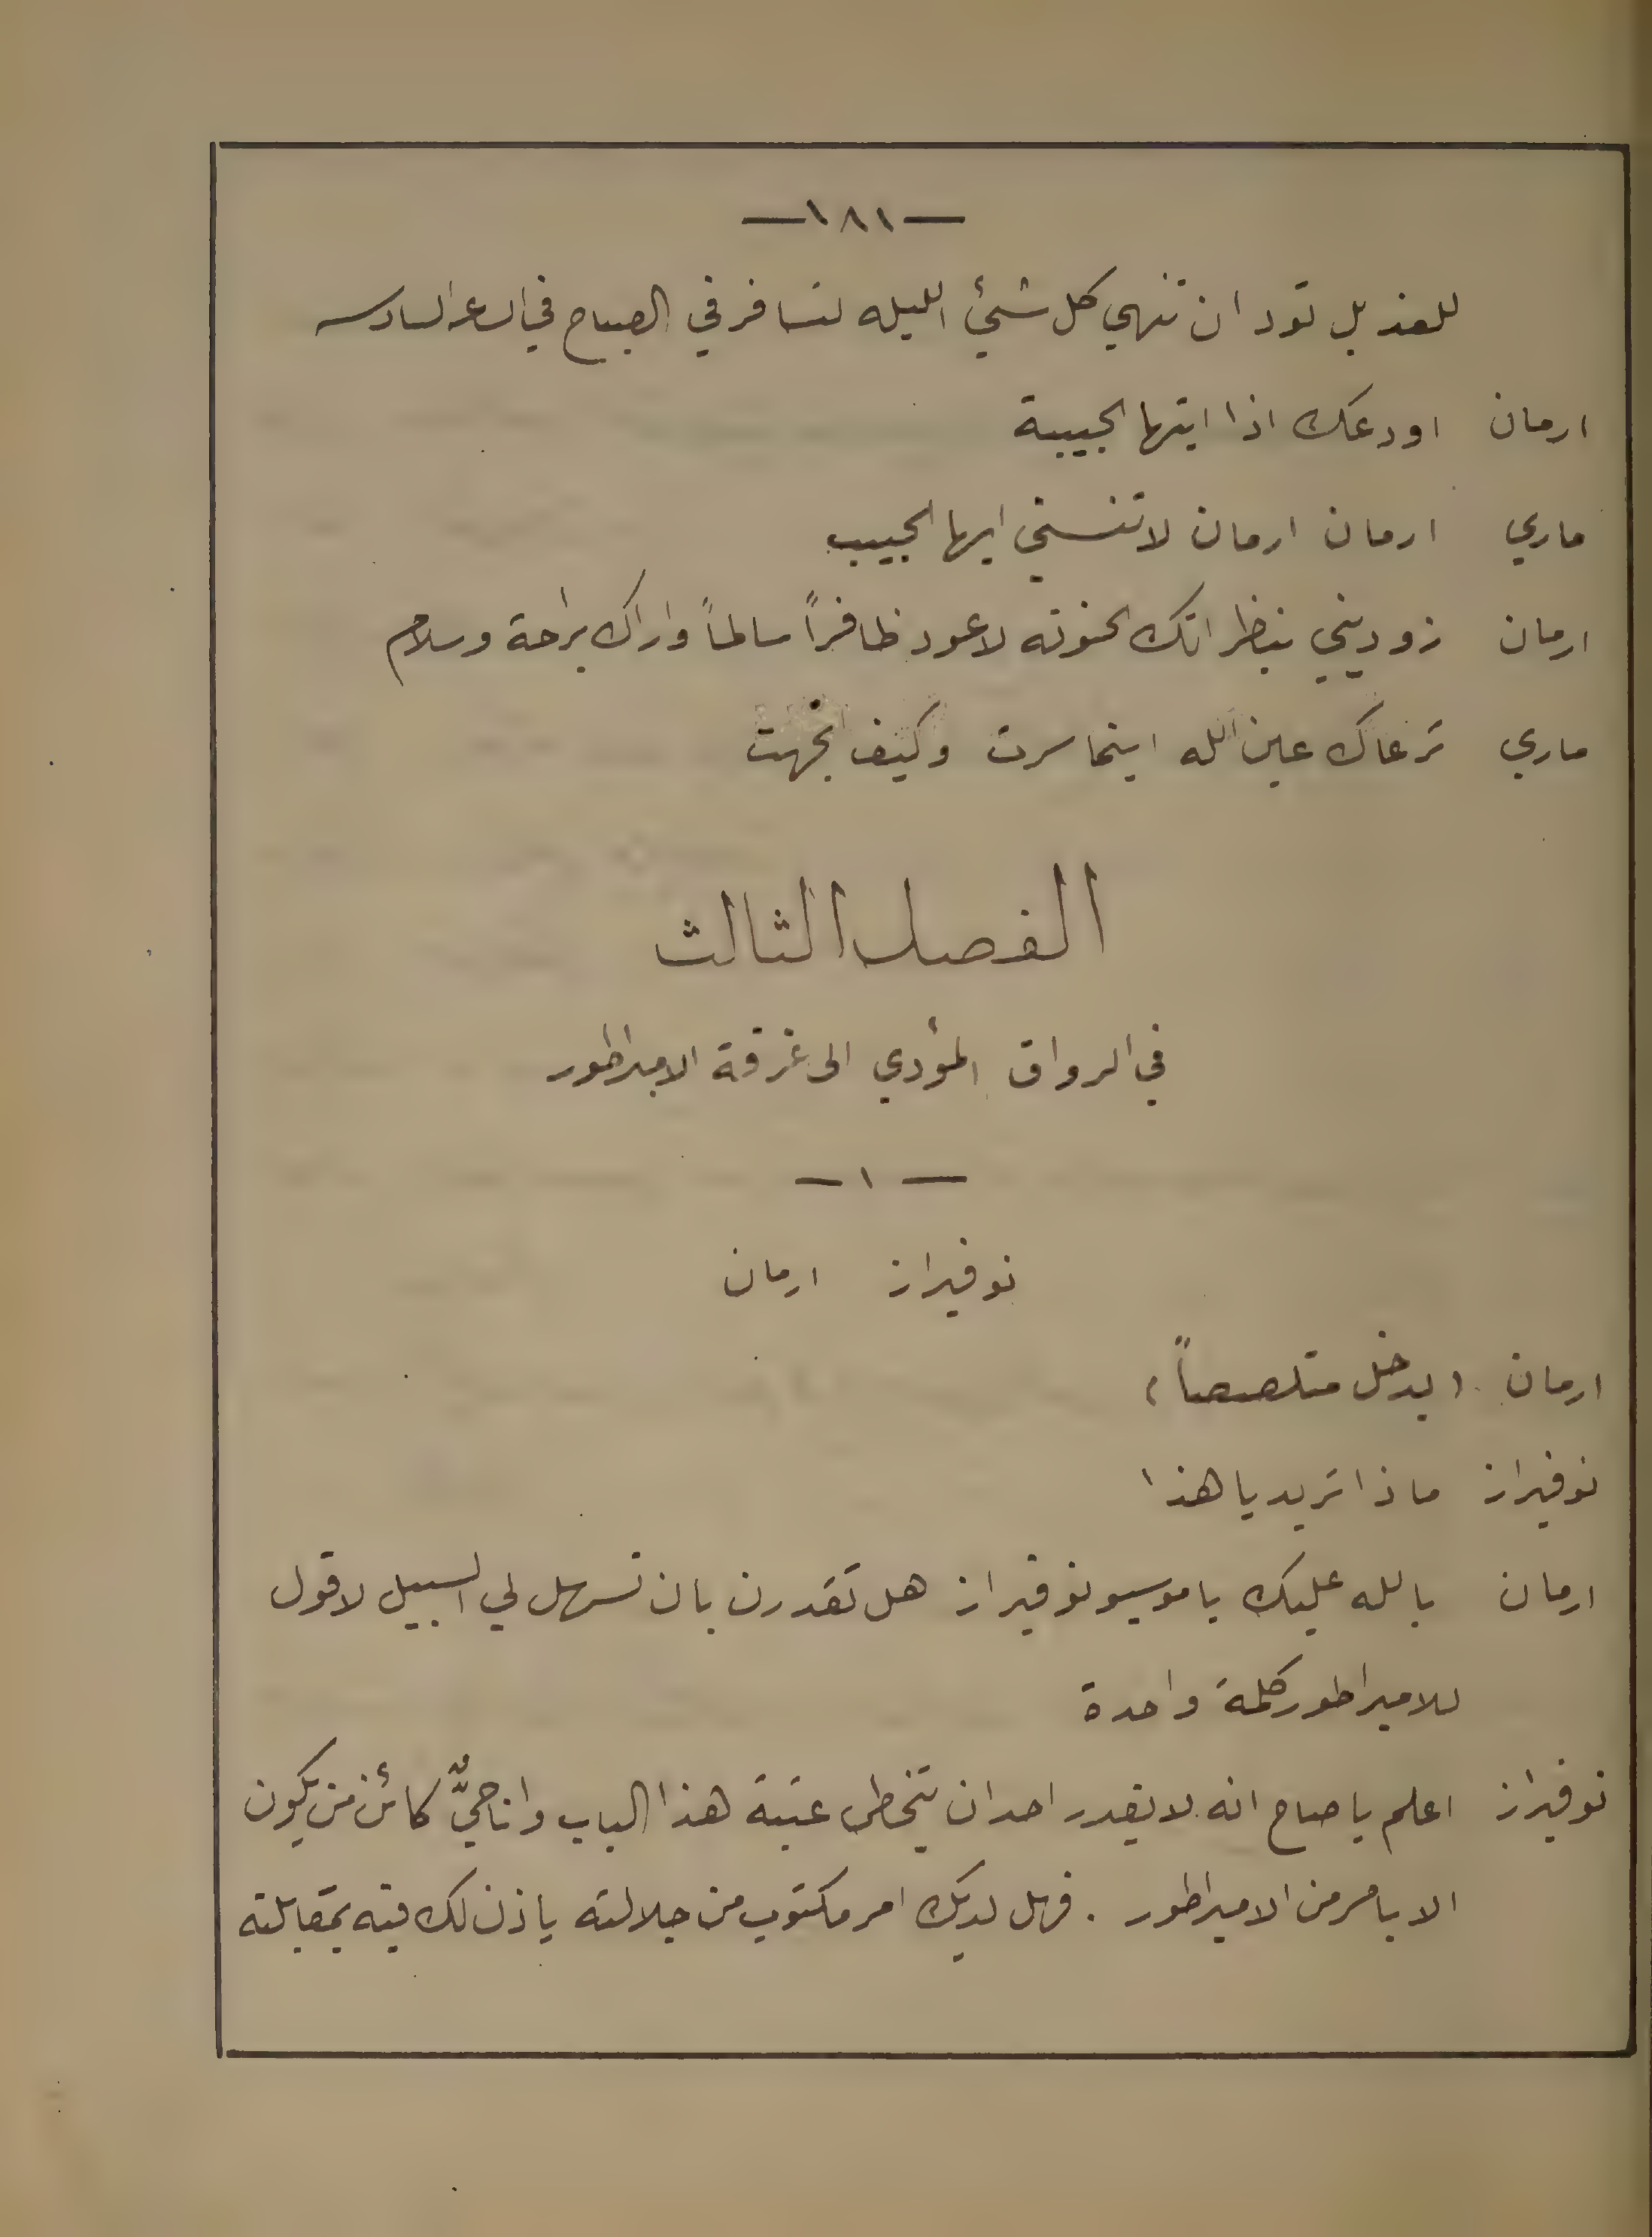 — ١٨١ —
للغد بل تود ان تنهي كل شيئ الليله لتسافر في الصباح في الساعه السادسه
ارمان اودعك اذا ايتها الحبيبة
ماري ارمان ارمان لا تنسني ايها الحبيب
ارمان زوديني بنظراتك الحنونه لاعود ظافراً سالماً واراك براحة وسلام
ماري ترعاك عين الله اينما سرت وكيف اتجهت
الفصل الثالث
في الرواق المؤدي الى غرفة الامبراطور
— ١ —
نوفيراز ارمان
ارمان (يدخل متلصصاً)
نوفيراز ماذا تريد يا هذا
ارمان بالله عليك يا موسيو نوفيراز هل تقدرن بان تسهل لي السبيل لاقول
للامبراطور كلمة واحدة
نوفيراز اعلم يا صاح انه لا يقدر احد ان يتخطى عتبة هذا الباب وانا حيٌّ كائن من يكون
الا بامر من الامبراطور . فهل لديك امر مكتوب من جلالته ياذن لك فيه بمقابلته